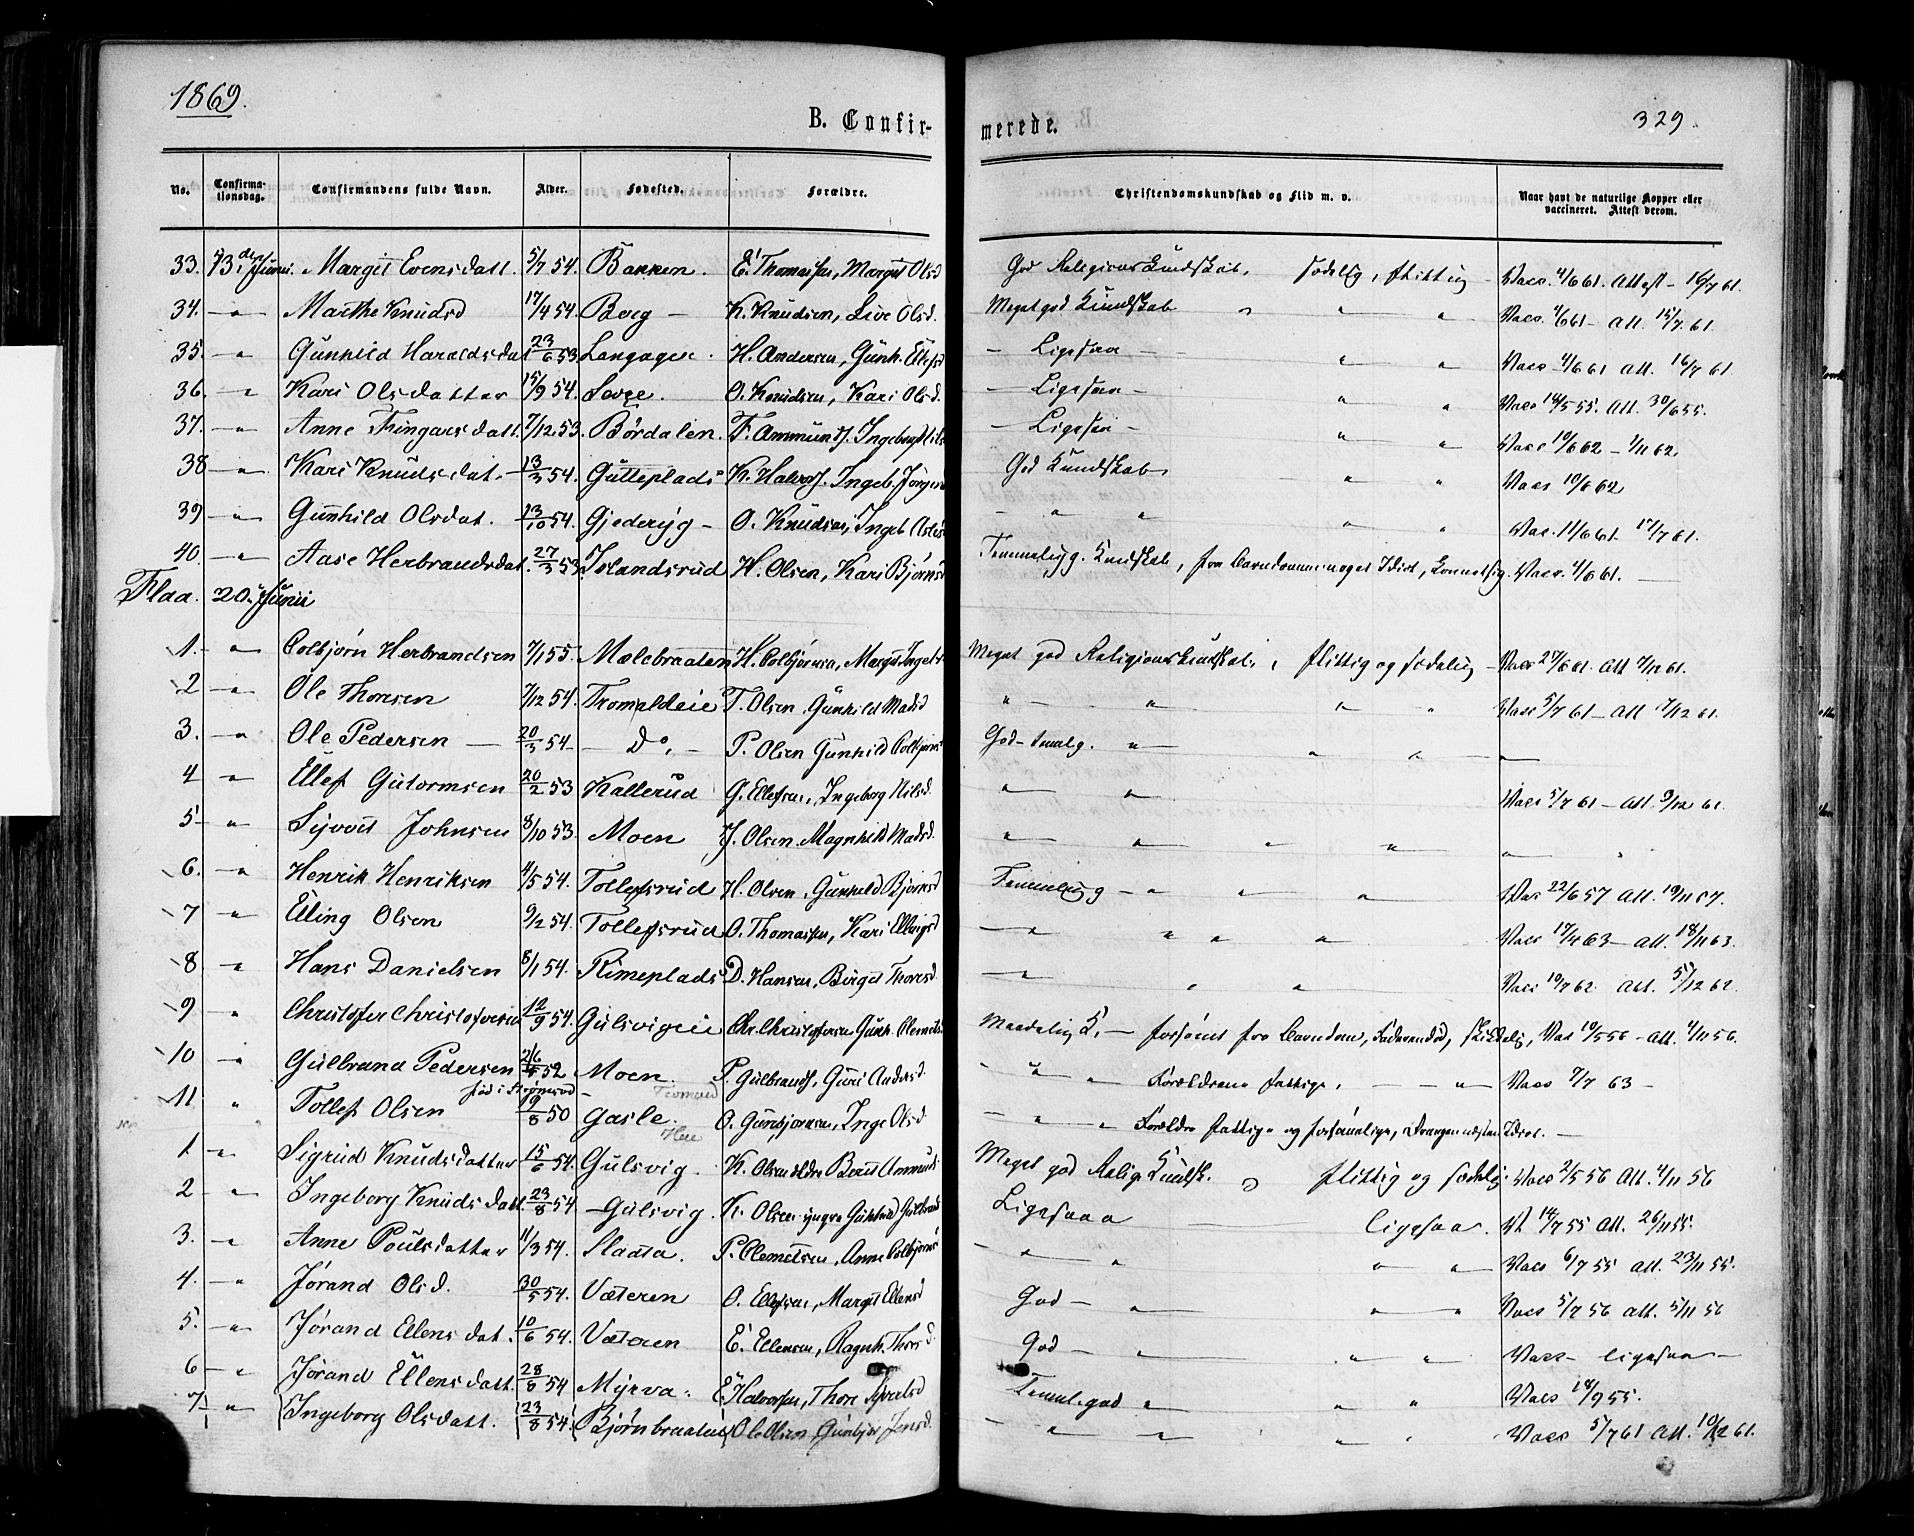 1869.
B. Confir-
merede.
329
No. Confirma-tionsdag. Confirmandens fulde Navn. Alder. Fødested. Forældre. Christendomskundskab og Flid m. v. Naar havt de naturlige Kopper eller vaccineret. Attest derom.
33. 13de Junii. Margit Evensdatt. 5/7 54. Bakken. E. Thomass, Margit Olsd God Religions Kundskab, sædelig, flittig Vacc. 4/6 61. Attest 16/7 61.
34. " Marthe Knudsd 17/4 54. Berg K. Knudsen, Live Olsd. Meget god Kundskab " " " Vacc. 4/6 61 Att. 15/7 61.
35. " Gunhild Haraldsdat 23/6 53 Langager. H. Andersen, Gunh. Ellefsd Ligesaa " " Vacc 4/6 61 Att. 16/7 61
36. " Kari Olsdatter 15/9 54. O. Knudsen, Kari Olsd. Ligesaa " " Vacc 18/5 55. Att. 30/6 55.
37. " Anne Fingarsdatt. 7/12 53. Børdalen. F. Ammunds. Ingeborg Nils Ligesaa " " Vacc 10/6 62 1/11 62.
38 " Kari Knudsdat. 13/3 54. Gutteplads K. Halvors. Ingeb. Jørgen God Kundskab, " " Vacc 10/6 62
39 " Gunhild Olsdat. 23/10 54. Gjederyg O. Knudsen, Ingeb. " " " " Vac. 11/6 61. 17/7 61.
40. " Aase Herbrandsdat. 27/3 53. Islandsrud H. Olsen, Kari Bjørns Temmelig g. Kundskab, fra Barndommen noget Idiot, Vacc. 4/6 61.
Flaa. 20. Junii
1. " Colbjørn Herbrandsen 7/1 55. Mælebraaten H. Colbjørnsen, Margit Ingebr Meget god Religionskundskab, flittig og sædelig Vacc 27/6 61. Att 7/12 61.
2 " Ole Thoresen 7/12 54. Trompldeie T. Olsen, Gunhild Madsd " " " " Vacc 5/7 61 Att 7/12 61.
3. " Ole Pedersen 20/3 54. Do. P. Olsen Gunhild Colbjørns God temelg. " " " "
4 " Ellef Gutormsen 20/2 53 Kallerud G. Ellefsen, Ingeborg Nilsd. " " Vacc 5/7 61 Att. 9/12 61.
5 " Syvert Johnsen 8/10 53. Moen J. Olsen. Magnhild Madsd. " " " " "
6. " Henrik Henriksen 4/5 54. Tollefsrud H. Olsen, Gunhild Bjørnsd Temmelig g " " " Vac 22/6 57 Att. 19/11 57.
7 " Elling Olsen 9/2 54. Tollefsrud O. Thomassen, Kari Ellingsd " " " " Vacc 17/4 63 Att. 18/11 63.
8 " Hans Danielsen 8/1 54. Rimeplads D. Hansen, Birget Thoresd " " " Vacc 10/7 62 Att. 5/12 62.
9 " Christofer Christofersen 12/9 54. Gulsvigeie Chr. Christofersen Gunh. Clemets Maadelig K. forsømt fra Barndom, Faderen død, skikkelig, Vac 10/5 56 Att. 4/11 56.
10 " Gulbrand Pedersen 26/ 52 Moen. P. Gulbrands. Guri Andersd. " " Forældrene fattige, " Vacc 7/7 63
11 " Tollef Olsen 19/8 50 Gasle. O. Gunbjørnsen, Inge Olsd. " " Forældre fattige og Idiot.
1 " Sigrid Knudsdatter 15/6 54. Gulsvig. K. Olsen ældre Berit Amunds Meget god Relig. Kundsk. " flittig og sædelig. Vacc 2/5 56 Att. 4/11 56
2 " Ingeborg Knudsdatt. 23/8 54. Gulsvig. K. Olsen yngre Gunhild Gulbrands Ligesaaa ligesaa. Vt 14/7 55 Att. 26/11 55.
3. " Anne Poulsdatter 11/3 54. Slaata. P. Clemetsen, Anne Colbjørns " " " " Vacc 6/7 55 Att. 23/11 55.
4. " Jørand Olsd. 30/5 54. Væteren O. Ellefsen, Margit Ellensd God " " " Vacc 5/7 56 Att. 5/11 56
5. " Jørand Ellensdat. 10/6 54. Væteren E. Ellensen, Ragnh. Thorsd. God " " " Vacc ligesaa
6 " Jørand Ellensdatt. 28/8 54 Myrva. E. Halvorsen, Thore Temmel. god " " " Vacc 18/9 55.
7 " Ingeborg Olsdatt. 23/8 54. Bjørnbraateie Ole Olsen Gunbjør Jensd. " " " " Vacc 5/7 61 Att. 10/12 61.